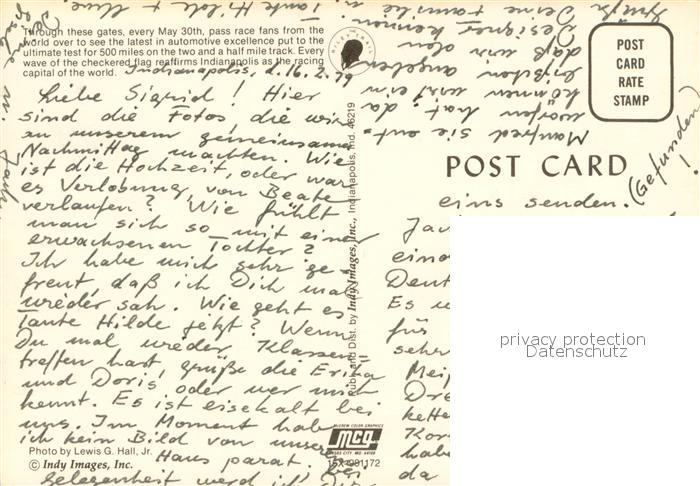 Through these gates, every May 30th, pass race fans from the
world over to see the latest in automotive excellence put to the
ultimate test for 500 miles on the two and a half mile track. Every
wave of the checkered flag reaffirms Indianapolis as the racing
capital of the world.
Indianapolis, d. 16. 2. 79
Liebe Sigrid! Hier
sind die Fotos die wir
an unserem gemeinsamen
Nachmittag machten. Wie
ist die Hochzeit, oder war
es Verlobung, von Beate
verlaufen? Wie fühlt
man sich so mit einer
erwachsenen Tochter?
Ich habe mich sehr ge-
freut, daß ich Dich mal
wieder sah. Wie geht es
Tante Hilde jetzt? Wenn
Du mal wieder Klassen-
treffen hast, grüße die Erika
und Doris oder wer mich
kennt. Es ist eisekalt bei
uns. Im Moment habe
ich kein Bild von unserem
Haus parat. Bei
Gelegenheit werd ich Dir
Photo by Lewis G. Hall, Jr.
© Indy Images, Inc.
Pub. and Dist. by Indy Images, Inc., Indianapolis, Ind. 46219
McGREW COLOR GRAPHICS
mcg
KANSAS CITY, MO. 64108
POST
CARD
RATE
STAMP
POST CARD
eins senden. (Gefunden)!
Es
für
sehr
habe
da
Manfred sie ent-
worfen hat. da
können wir ein
bißchen angeben
daß wir den
Designer kennen.
Tante Hilde +
privacy protection
Datenschutz